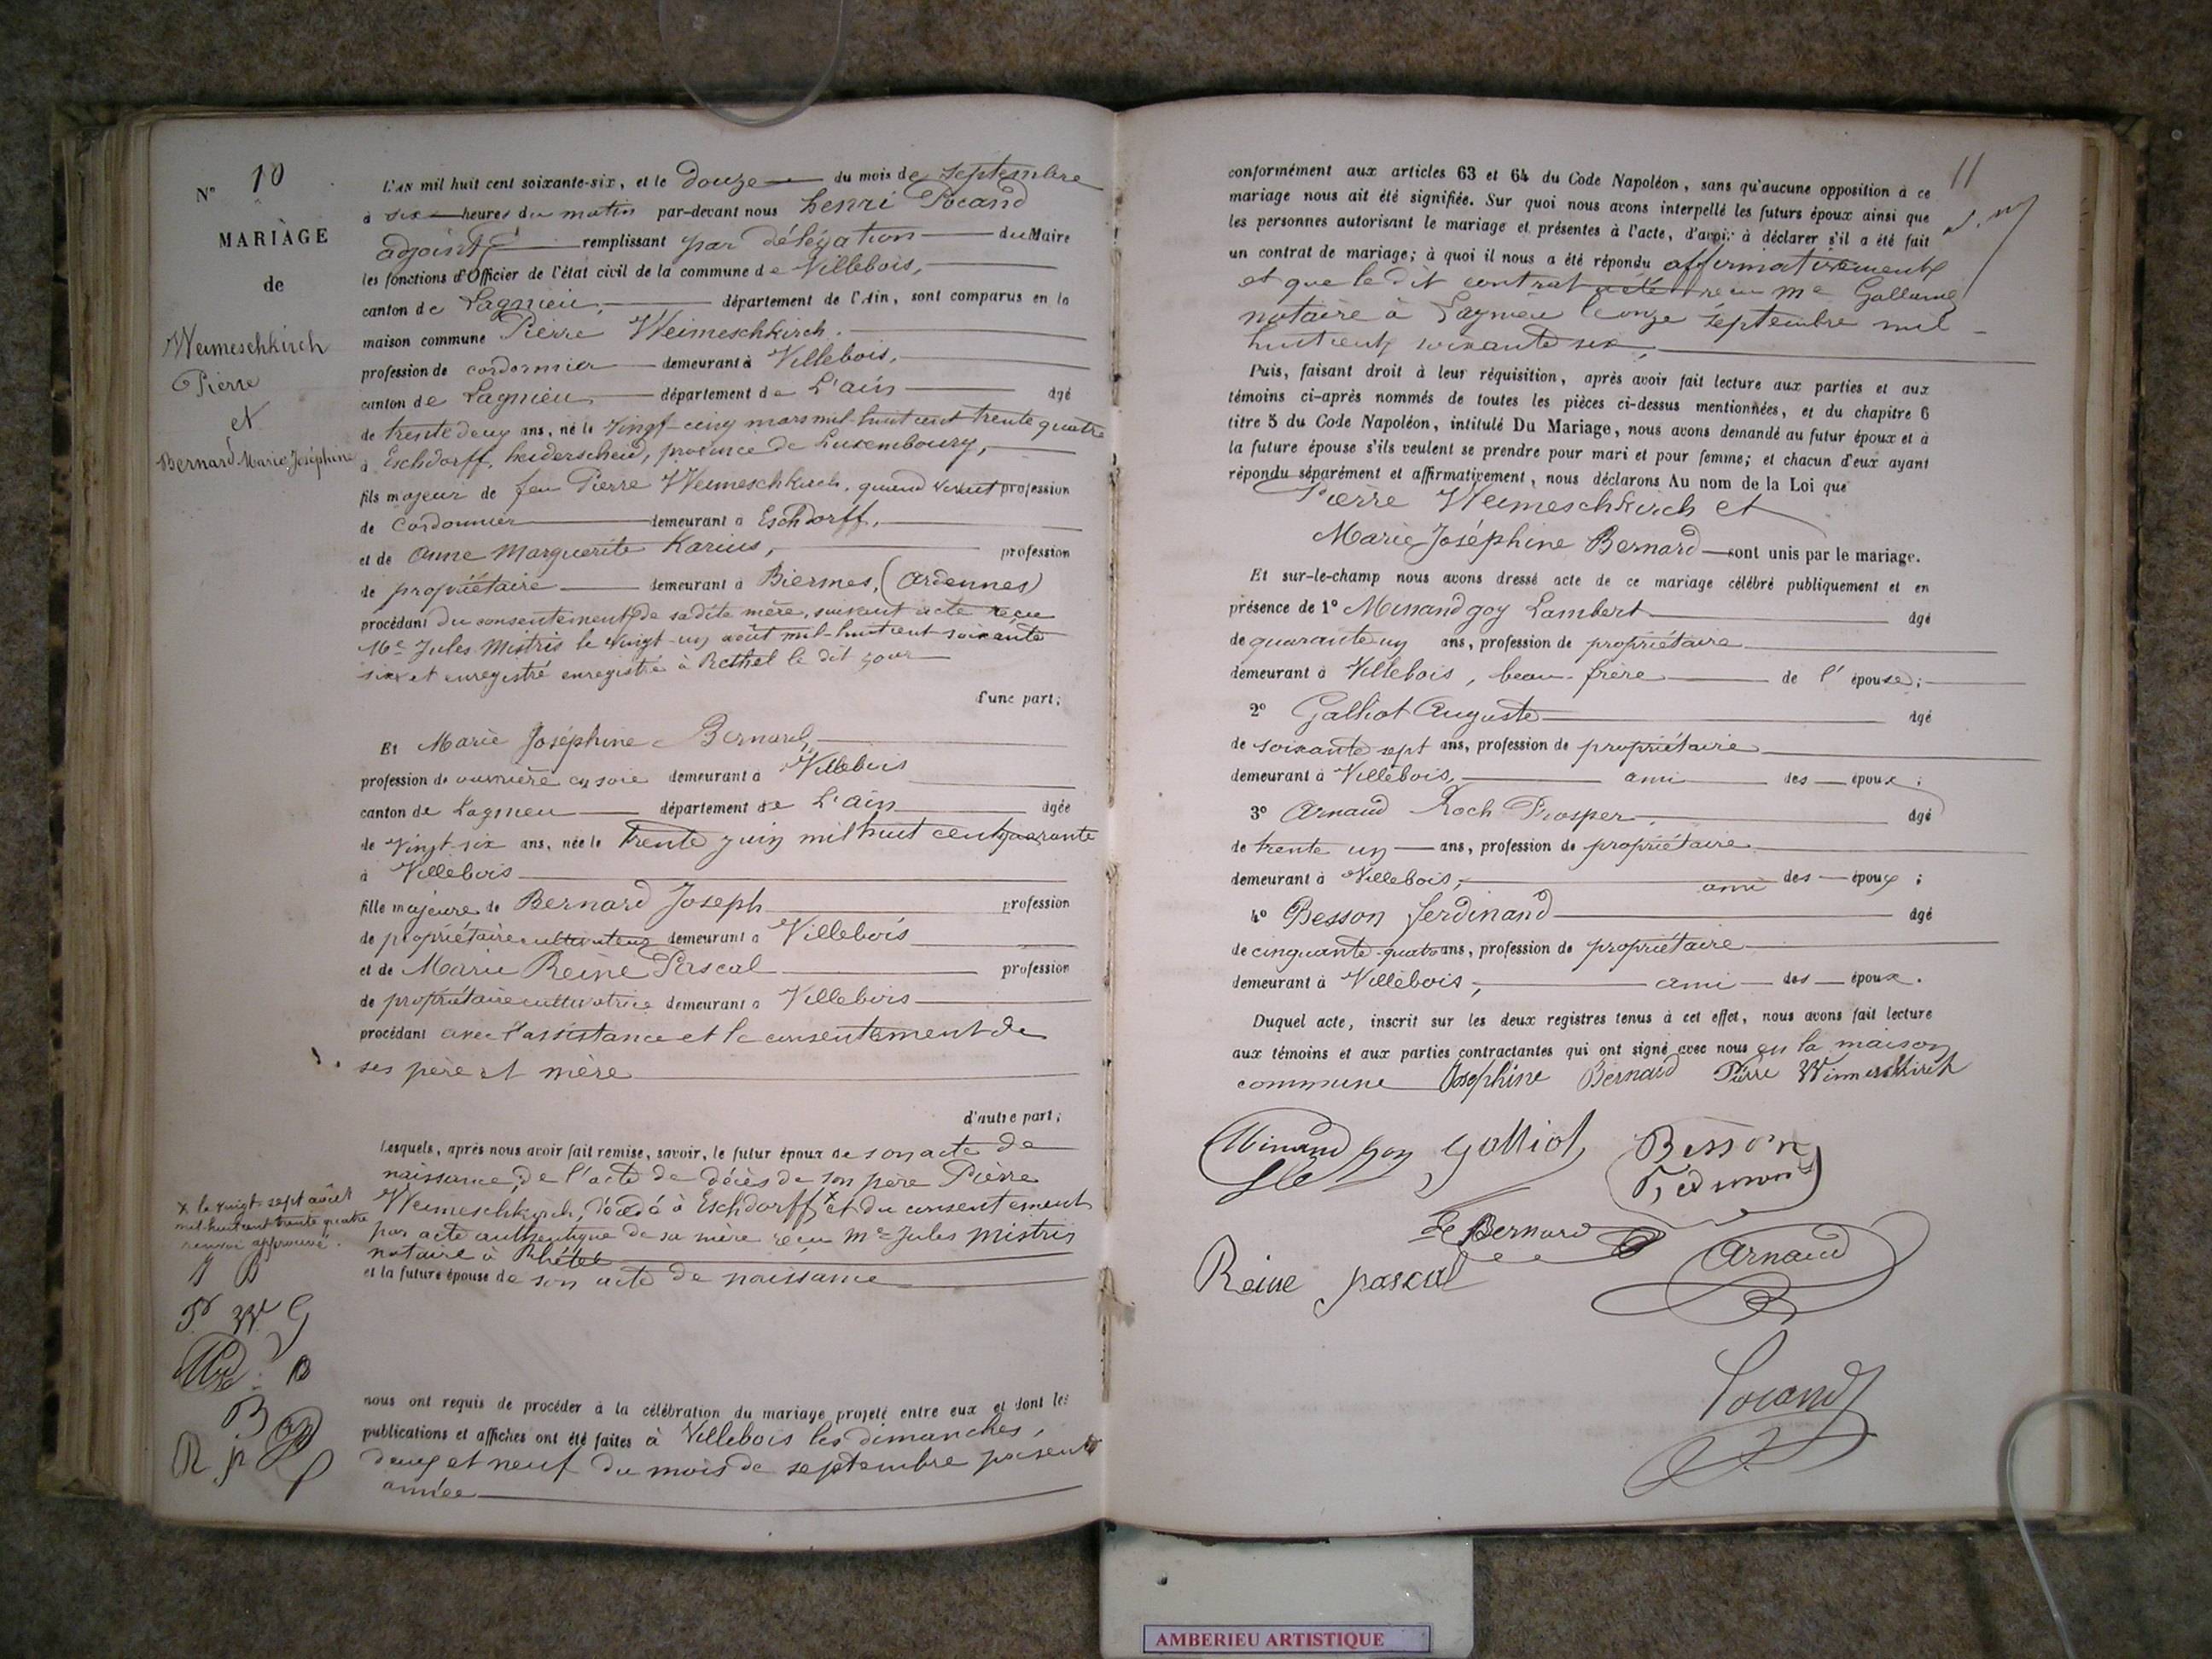 N° 10
MARIAGE
de
Weimeschkirch
Pierre
et
Bernard Marie Joséphine
L'AN mil huit cent soixante-six, et le Douze du mois de Septembre
à six heures du matin par-devant nous henri Pocand
adjoint remplissant par délégation du Maire
les fonctions d'Officier de l'état civil de la commune de Villebois,
canton de Lagnieu, département de l'Ain, sont comparus en la
maison commune Pierre Weimeschkirch.
profession de cordonnier demeurant à Villebois,
canton de Lagnieu département de L'ain âgé
de trente deux ans, né le Vingt-cinq mars mil-huit cent trente quatre
à Eschdorff, heiderscheid, province de Luxembourg,
fils majeur de feu Pierre Weimeschkirch, quand vivait profession
de Cordonnier demeurant à Eschdorff,
et de Anne Marguerite Karius, profession
de propriétaire demeurant à Biermes, (Ardennes)
procédant du consentement de sadite mère, suivant acte reçu
Me Jules Mistris le vingt-un août mil-huit cent soixante
six et enregistré enregistré à Rethel le dit jour
d'une part;
Et Marie Joséphine Bernard,
profession de ouvrière en soie demeurant à Villebois
canton de Lagnieu département de L'ain âgée
de Vingt-six ans, née le trente juin mil huit cent quarante
à Villebois
fille majeure de Bernard Joseph profession
de propriétaire cultivateur demeurant à Villebois
et de Marie Reine Pascal profession
de propriétaire cultivatrice demeurant à Villebois
procédant avec l'assistance et le consentement de
ses père et mère
d'autre part;
Lesquels, après nous avoir fait remise, savoir, le futur époux de son acte de
naissance, de l'acte de décès de son père Pierre
Weimeschkirch, décédé à Eschdorff x et du consentement
par acte authentique de sa mère reçu Me Jules Mistris
notaire à Rhétel
et la future épouse de son acte de naissance
x le vingt-sept août
mil-huit cent trente quatre
renvoi approuvé.
J B
P W G
B
B
R p
nous ont requis de procéder à la célébration du mariage projeté entre eux et dont les
publications et affiches ont été faites à Villebois les dimanches,
deux et neuf du mois de septembre présente
année
11
conformément aux articles 63 et 64 du Code Napoléon, sans qu'aucune opposition à ce
mariage nous ait été signifiée. Sur quoi nous avons interpellé les futurs époux ainsi que
les personnes autorisant le mariage et présentes à l'acte, d'avoir à déclarer s'il a été fait
un contrat de mariage; à quoi il nous a été répondu affirmativement
et que le dit contrat reçu Me
notaire à Lagnieu le onze septembre mil
huit cent soixante six,
Puis, faisant droit à leur réquisition, après avoir fait lecture aux parties et aux
témoins ci-après nommés de toutes les pièces ci-dessus mentionnées, et du chapitre 6
titre 5 du Code Napoléon, intitulé Du Mariage, nous avons demandé au futur époux et à
la future épouse s'ils veulent se prendre pour mari et pour femme; et chacun d'eux ayant
répondu séparément et affirmativement, nous déclarons Au nom de la Loi que
Pierre Weimeschkirch et
Marie Joséphine Bernard sont unis par le mariage.
Et sur-le-champ nous avons dressé acte de ce mariage célébré publiquement et en
présence de 1° Minand goy Lambert âgé
de quarante un ans, profession de propriétaire
demeurant à Villebois, beau-frère de l'épouse;
2° Galliot Auguste âgé
de soixante sept ans, profession de propriétaire
demeurant à Villebois, ami des époux;
3° Arnaud Roch Prosper, âgé
de trente un ans, profession de propriétaire
demeurant à Villebois, ami des époux;
4° Besson ferdinand âgé
de cinquante-quatre ans, profession de propriétaire
demeurant à Villebois, ami des époux.
Duquel acte, inscrit sur les deux registres tenus à cet effet, nous avons fait lecture
aux témoins et aux parties contractantes qui ont signé avec nous en la maison
commune Josephine Bernard Pierre Wimmerskirch
Minand Goy Galliot Besson
Bernard
Reine pascal Arnaud
Pocand
AMBERIEU ARTISTIQUE